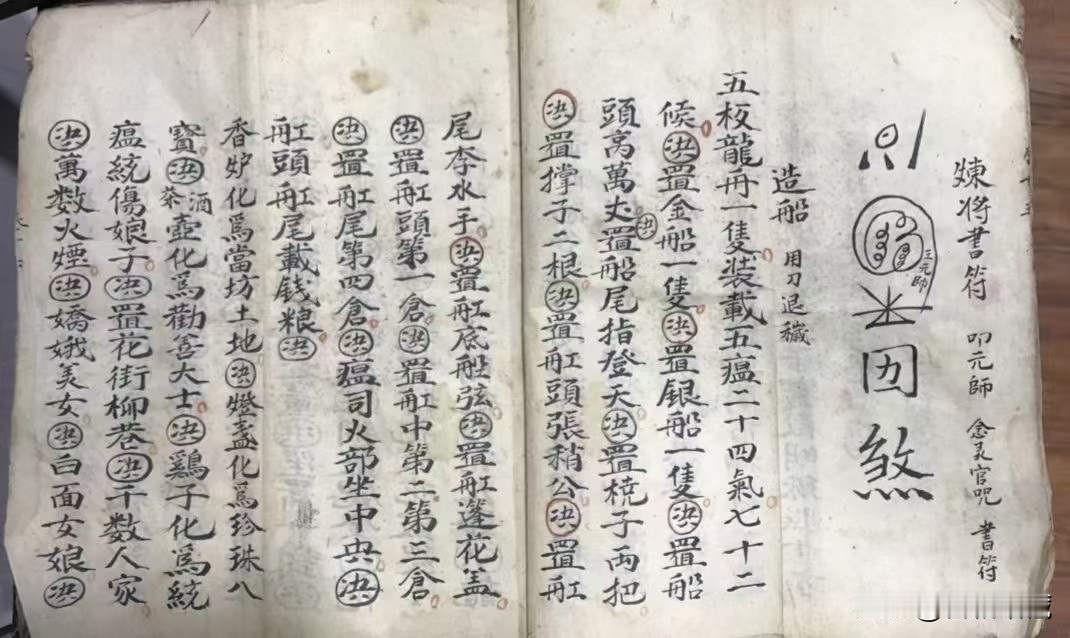 煉将書符 叩元帥 念灵官咒 書符
王元帥
煞
造船 用刀退穢
五板龍舟一隻裝載五瘟二十四氣七十二
候决置金船一隻决置银船一隻决置船
頭高萬丈决置船尾指登天决置橈子両把
决置撑子二根决置舡頭張稍公决置舡
尾李水手决置舡底舩弦决置舡蓬花盖
决置舡頭第一倉决置舡中第二第三倉
决置舡尾第四倉决瘟司火部坐中央决
舡頭舡尾載钱粮决
香炉化爲當坊土地决燈盞化爲珍珠八
寳决茶酒壺化爲勸善大士决鷄子化爲統
瘟統傷娘子决置花街柳巷决千数人家
决萬数火煙决嬌娥美女决白面女娘决